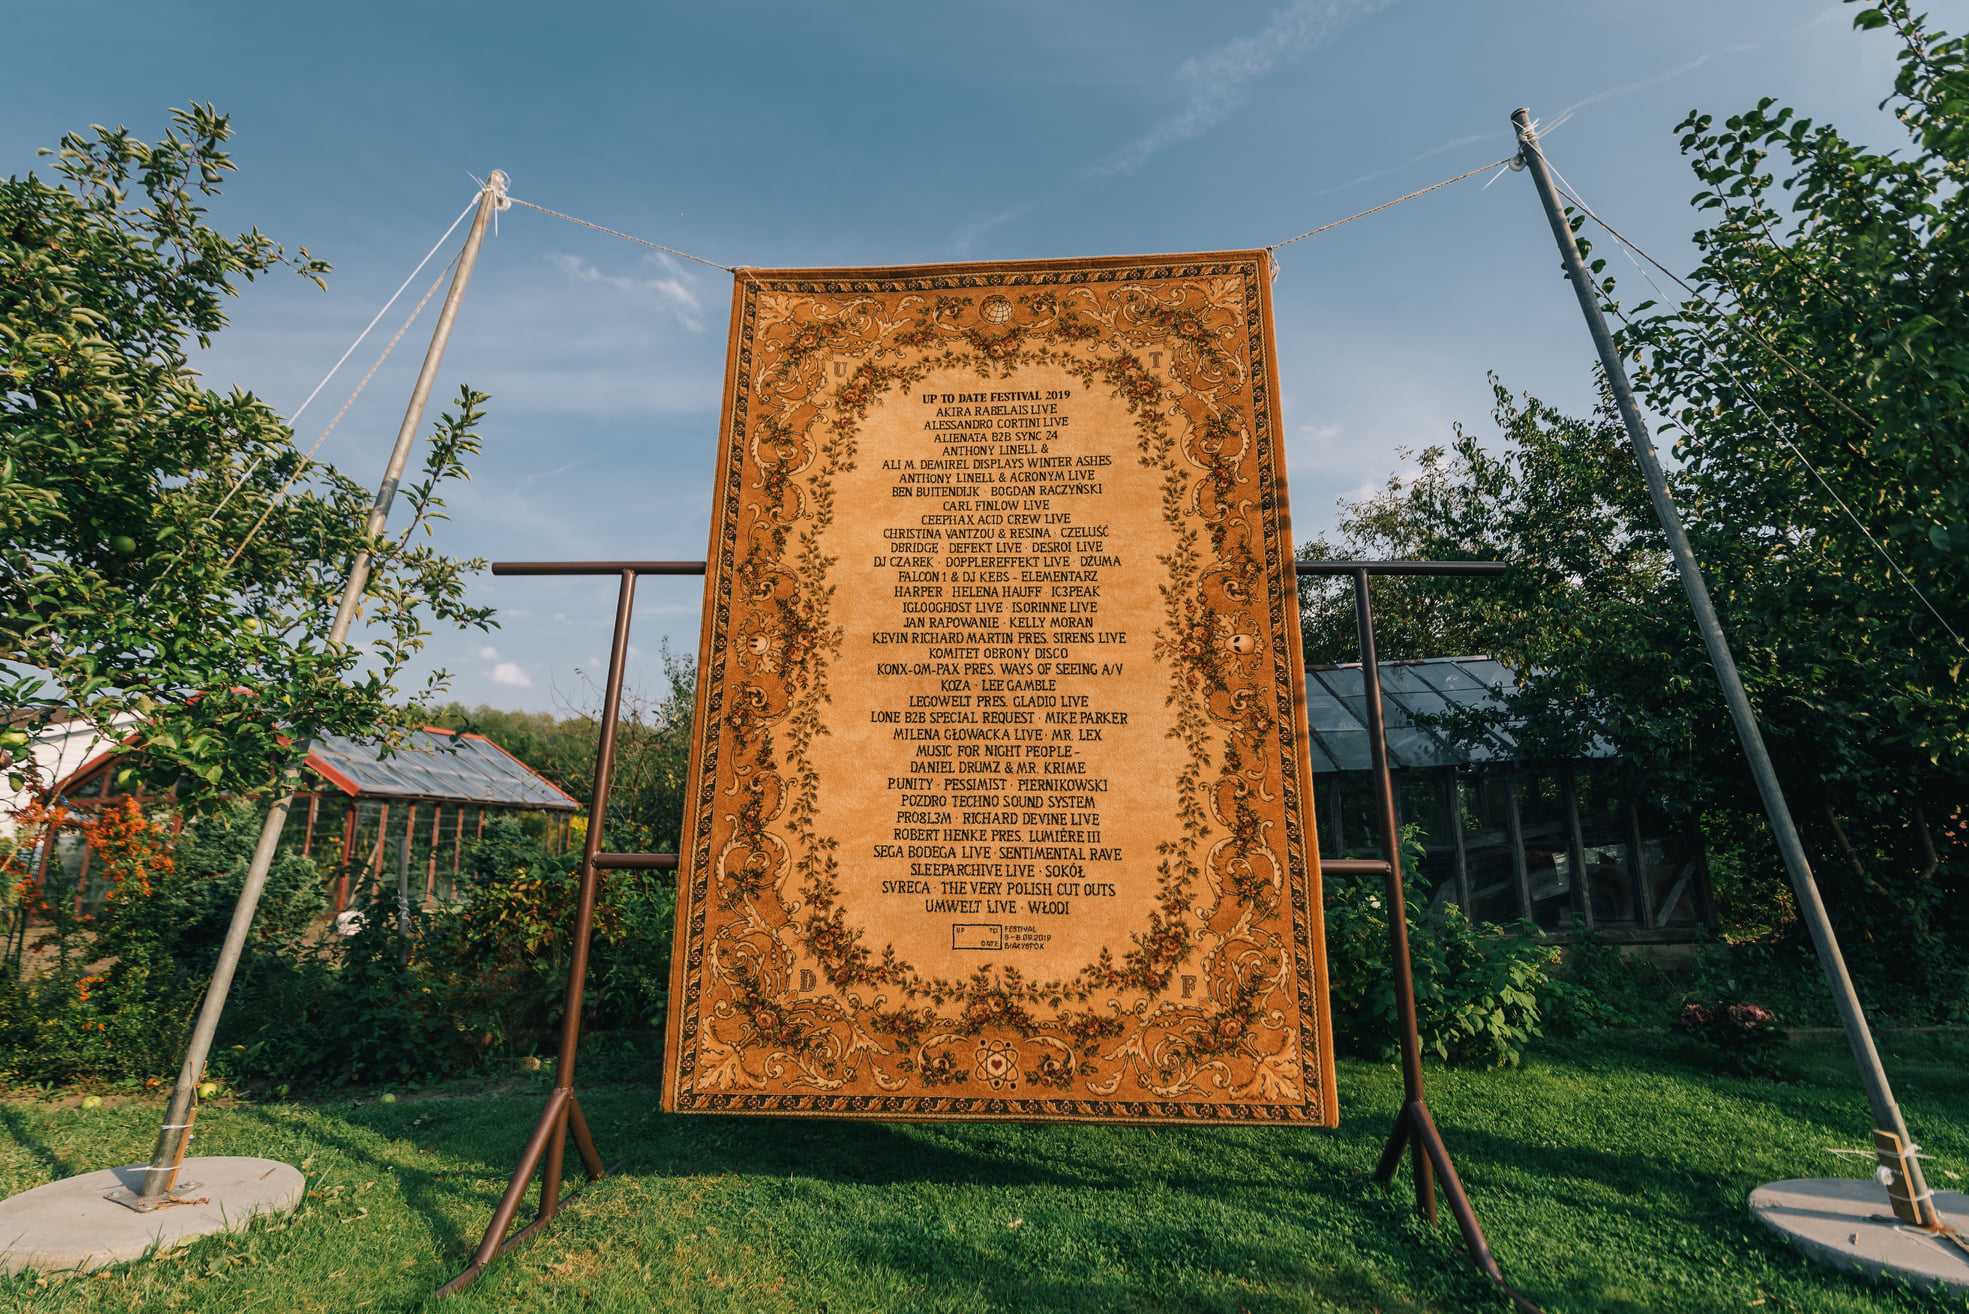 U T
UP TO DATE FESTIVAL 2019
AKIRA RABELAIS LIVE
ALESSANDRO CORTINI LIVE
ALIENATA B2B SYNC 24
ANTHONY LINELL &
ALI M. DEMIREL DISPLAYS WINTER ASHES
ANTHONY LINELL & ACRONYM LIVE
BEN BUITENDIJK · BOGDAN RACZYŃSKI
CARL FINLOW LIVE
CEEPHAX ACID CREW LIVE
CHRISTINA VANTZOU & RESINA · CZELUŚĆ
DBRIDGE · DEFEKT LIVE · DESROI LIVE
DJ CZAREK · DOPPLEREFFEKT LIVE · DŻUMA
FALCON1 & DJ KEBS - ELEMENTARZ
HARPER · HELENA HAUFF · IC3PEAK
IGLOOGHOST LIVE · ISORINNE LIVE
JAN RAPOWANIE · KELLY MORAN
KEVIN RICHARD MARTIN PRES. SIRENS LIVE
KOMITET OBRONY DISCO
KONX-OM-PAX PRES. WAYS OF SEEING A/V
KOZA · LEE GAMBLE
LEGOWELT PRES. GLADIO LIVE
LONE B2B SPECIAL REQUEST · MIKE PARKER
MILENA GŁOWACKA LIVE · MR. LEX
MUSIC FOR NIGHT PEOPLE -
DANIEL DRUMZ & MR. KRIME
P.UNITY · PESSIMIST · PIERNIKOWSKI
POZDRO TECHNO SOUND SYSTEM
PRO8L3M · RICHARD DEVINE LIVE
ROBERT HENKE PRES. LUMIÈRE III
SEGA BODEGA LIVE · SENTIMENTAL RAVE
SLEEPARCHIVE LIVE · SOKÓŁ
SVRECA · THE VERY POLISH CUT OUTS
UMWELT LIVE · WŁODI
UP TO DATE
FESTIVAL
5-8.09.2019
BIAŁYSTOK
D F